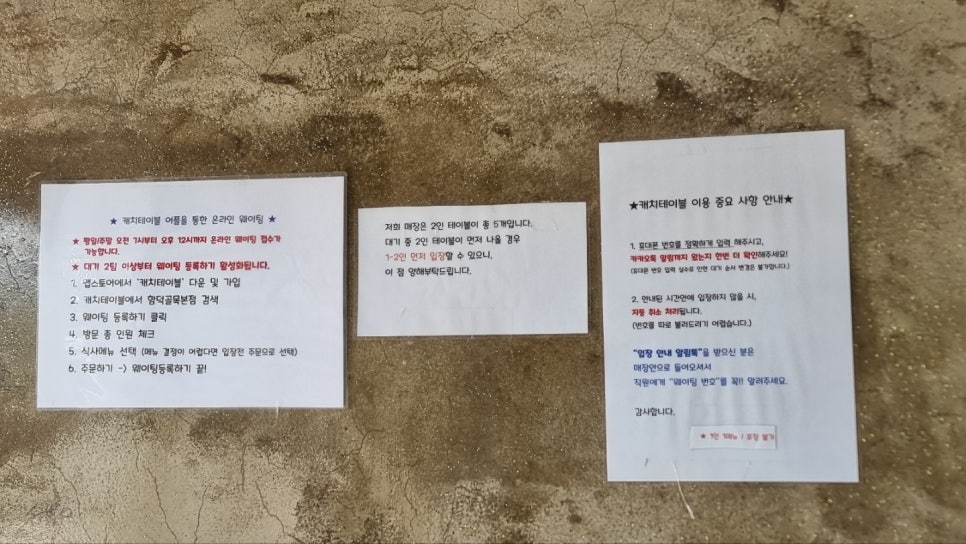 ★ 캐치테이블 어플을 통한 온라인 웨이팅 ★
★ 평일/주말 오전 7시부터 오후 12시까지 온라인 웨이팅 접수가
가능합니다.
★ 대기 2팀 이상부터 웨이팅 등록하기 활성화됩니다.
1. 앱스토어에서 '캐치테이블' 다운 및 가입
2. 캐치테이블에서 함덕골목본점 검색
3. 웨이팅 등록하기 클릭
4. 방문 총 인원 체크
5. 식사메뉴 선택 (메뉴 결정이 어렵다면 입장전 주문으로 선택)
6. 주문하기 -> 웨이팅등록하기 끝!
저희 매장은 2인 테이블이 총 5개입니다.
대기 중 2인 테이블이 먼저 나올 경우
1-2인 먼저 입장할 수 있으니,
이 점 양해부탁드립니다.
★캐치테이블 이용 중요 사항 안내★
1. 휴대폰 번호를 정확하게 입력 해주시고,
카카오톡 알림까지 왔는지 한번 더 확인해주세요!
(휴대폰 번호 입력 실수로 인한 대기 순서 변경은 불가합니다.)
2. 안내된 시간안에 입장하지 않을 시,
자동 취소 처리됩니다.
(번호를 따로 불러드리기 어렵습니다.)
"입장 안내 알림톡"을 받으신 분은
매장안으로 들어오셔서
직원에게 "웨이팅 번호"를 꼭!! 알려주세요.
감사합니다.
★ 1인 1메뉴 / 포장 불가